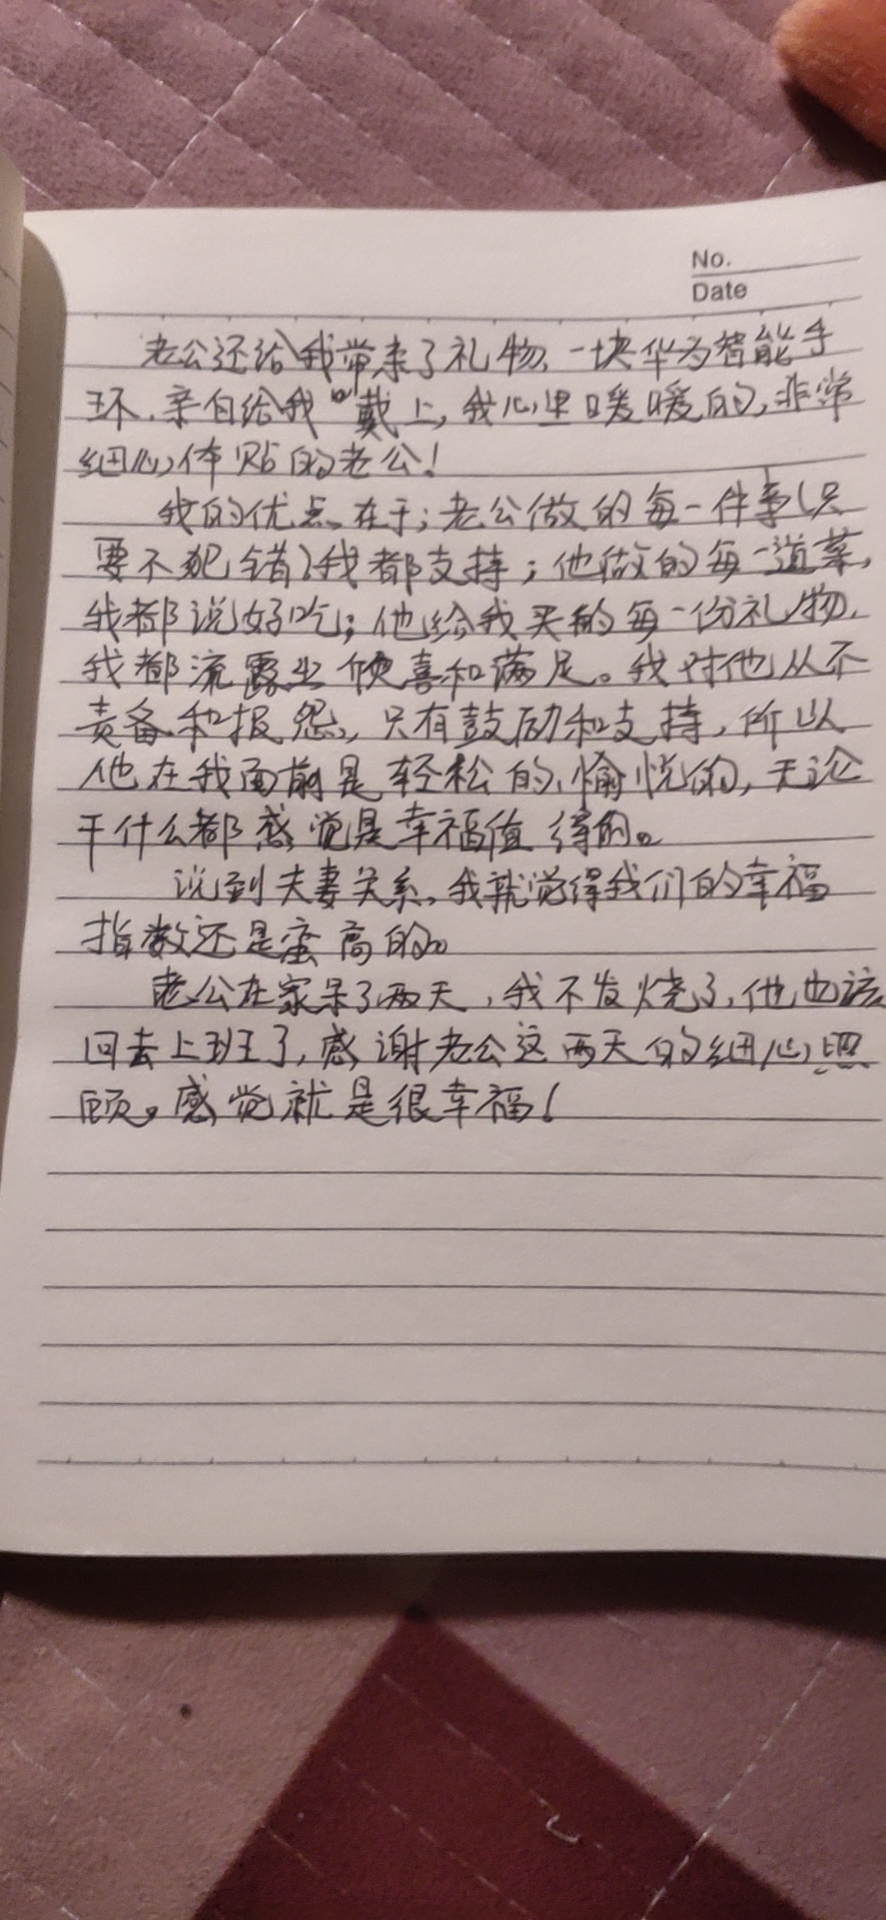 No.
Date
老公还给我带来了礼物，一块华为智能手
环，亲自给我戴上，我心里暖暖的，非常
细心体贴的老公！
我的优点在于；老公做的每一件事（只
要不犯错）我都支持；他做的每一道菜，
我都说好吃；他给我买的每一份礼物，
我都流露出惊喜和满足。我对他从不
责备和报怨，只有鼓励和支持，所以
他在我面前是轻松的，愉悦的，无论
干什么都感觉是幸福值得的。
说到夫妻关系，我就觉得我们的幸福
指数还是蛮高的。
老公在家呆了两天，我不发烧了，他也该
回去上班了，感谢老公这两天的细心照
顾。感觉就是很幸福！